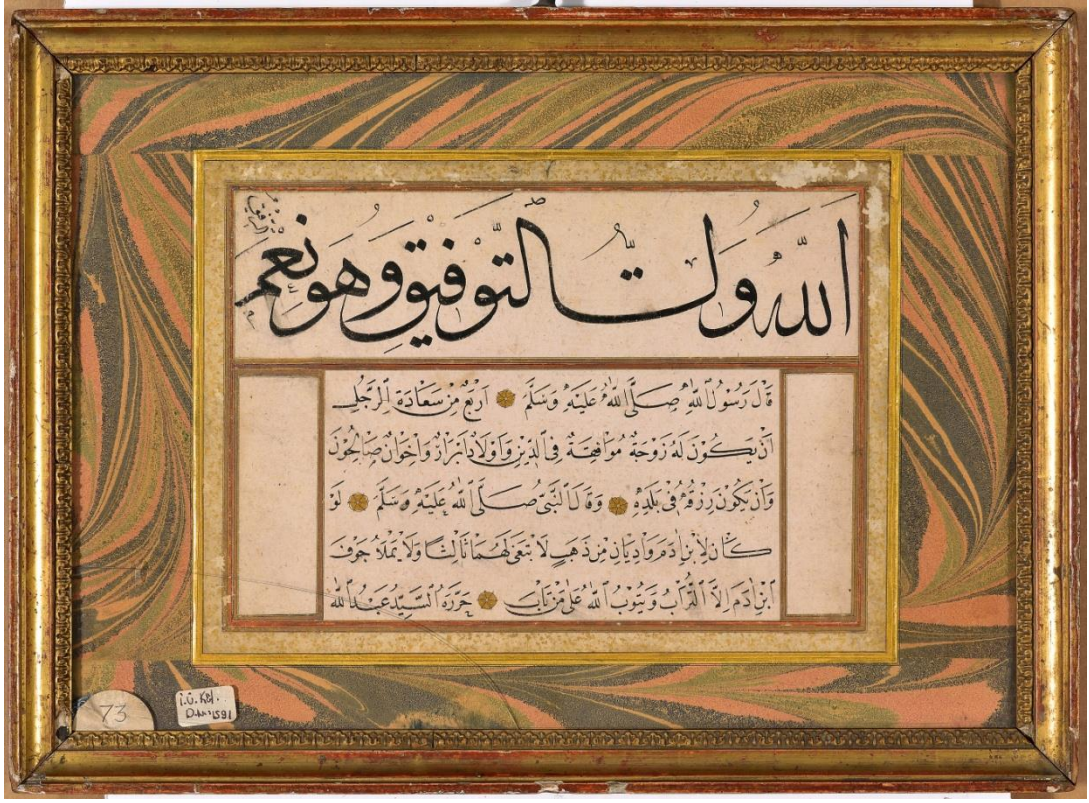 الله ولي التوفيق وهو نعم الرفيق
قَالَ رَسُولُ اللّٰهِ صَلَّى اللّٰهُ عَلَيْهِ وَسَلَّمَ اَرْبَعٌ مِنْ سَعَادَةِ الرَّجُلِ
اَنْ يَكُونَ لَهُ زَوْجَةٌ مُوَافِقَةٌ فِي الدِّينِ وَاَوْلَادٌ اَبْرَارٌ وَاِخْوَانٌ صَالِحُونَ
وَاَنْ يَكُونَ رِزْقُهُ فِي بَلَدِهِ وَقَالَ النَّبِيُّ صَلَّى اللّٰهُ عَلَيْهِ وَسَلَّمَ لَوْ
كَانَ لِابْنِ اٰدَمَ وَادِيَانِ مِنْ ذَهَبٍ لَابْتَغٰى لَهُمَا ثَالِثًا وَلَا يَمْلَأُ جَوْفَ
ابْنِ اٰدَمَ اِلَّا التُّرَابُ وَيَتُوبُ اللّٰهُ عَلٰى مَنْ تَابَ حَرَّرَهُ السَّيِّدُ عَبْدُ اللّٰهِ
73
İ.Ü. Ktf.
D.No: 1591